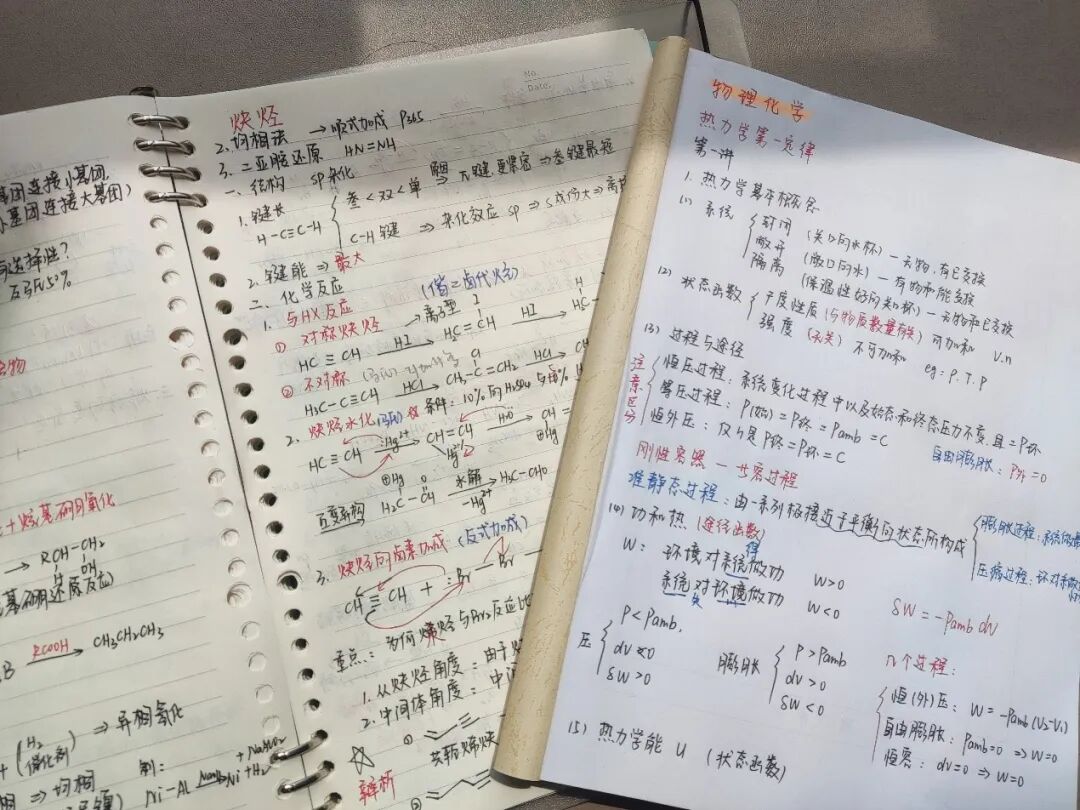 基团连接小基团
基团连接大基团)
选择性?
50%
合物
烃基硼氧化
→ ROH-CH₂
OH
基硼还原反应)
B RCOOH→ CH₃CH₂CH₃
(H₂ 催化剂) ⇒ 异相氧化
⇒ 均相
制:
Ni-Al NaOH→ Ni+H₂ + NaAlO₂
No.
Date.
炔烃
2. 均相法 → 顺式加成 P365
3. 二亚胺还原 HN=NH
一、结构 SP杂化
1. 键长
H-C≡C-H
叁<双<单 原因⇒ π键更紧密 ⇒ 叁键最短
C-H键 ⇒ 杂化效应 SP ⇒ S成份大 ⇒ 离核
2. 键能 ⇒ 最大
二、化学反应
1. 与HX反应 (偕二卤代烃)
① 对称炔烃 → 离子型
HC≡CH HI→ HC=CH HI→ HC-
② 不对称
H₃C-C≡CH HCl→ CH₃-C=CH₂ HCl→ CH
2. 炔烃水化(马氏) 条件: 10%的H₂SO₄与5%
HC≡CH Hg²⁺→ CH=CH H₂O→ CH=
互变异构 H₃C-C-CH 水解→ -Hg²⁺ H₃C-CHO
3. 炔烃的卤素加成 (反式加成)
CH≡CH + :Br-Br
重点: 为何炔烃与Br₂反应比
1. 从炔烃角度: 由于
2. 中间体角度: 中间
①
共轭烯炔
☆
辨析
②
物理化学
热力学第一定律
第一讲
1. 热力学基本概念
(1) 系统
封闭 (关口的水杯) — 无物,有已交换
敞开 (敞口的水) — 有物和能交换
隔离 (保温性好的关口杯) — 无物和已交换
(2) 状态函数
广度性质 (与物质数量有关) 可加和 V.n
强度 (无关) 不可加和 eg: P.T.ρ
(3) 过程与途径
注意区分
恒压过程: 系统变化过程中以及始态和终态压力不变,且=P环
等压过程: P(始) = P终 = Pamb = C
恒外压: 仅仅是P终=P环=C 自由膨胀: P外=0
刚性容器 — 恒容过程
准静态过程: 由一系列极接近于平衡的状态所构成
膨胀过程: 系统
压缩过程: 环对系做
(4) 功和热 (途径函数)
W: 环境对系统做功 W>0
得
系统对环境做功 W<0
失
δW = -Pamb dV
压
P<Pamb.
dv<0
δW>0
膨胀
P>Pamb
dv>0
δW<0
几个过程:
恒(外)压: W = -Pamb(V₂-V₁)
自由膨胀: Pamb=0 ⇒ W=0
恒容: dv=0 ⇒ W=0
(5) 热力学能 U (状态函数)